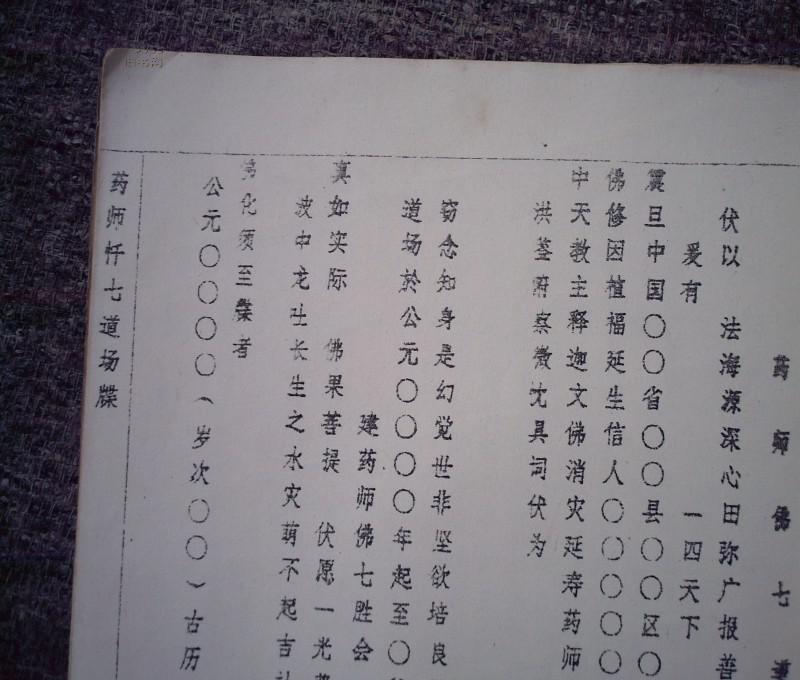 药师佛七道
伏以 法海源深心田弥广报善
爰有 一四天下
震旦中国〇〇省〇〇县〇〇区〇
佛修因植福延生信人〇〇〇〇〇
中天教主释迦文佛消灾延寿药师
洪 蔚察微 具词伏为
窃念知身是幻觉世非坚欲培良
道场於公元〇〇〇〇年起至〇
建药师佛七胜会
真如实际 佛果菩提 伏愿一光
波中龙吐长生之水灾萌不起吉
化须至牒者
公元〇〇〇〇(岁次〇〇)古历
药师忏七道场牒